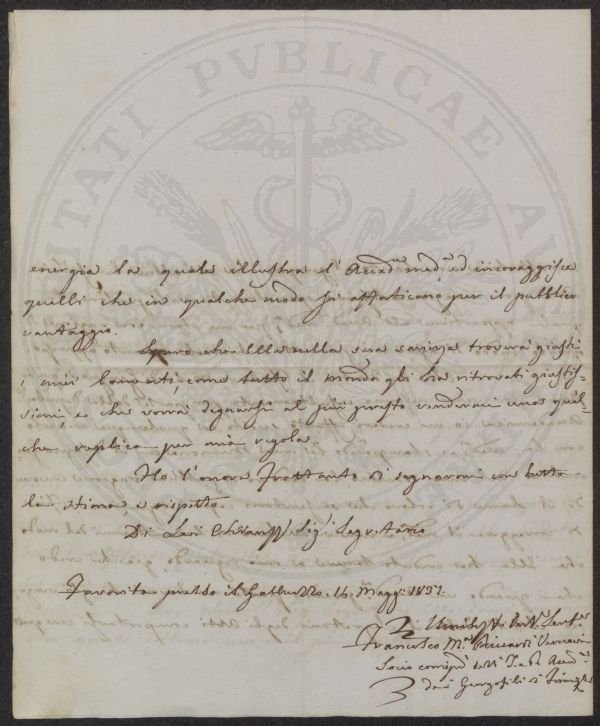 PVBLICAE
energia la quale illustra l' Accad.a med.a ed incoraggisce
quelli che in qualche modo si affaticano per il pubblico
vantaggio.
Spero che Ella nella sua saviezza troverà giusti
i miei lamenti, come tutto il mondo gli ha ritrovati giustis=
simi, e che vorrà degnarsi al più presto rendermi una qual=
che replica per mia regola.
Ho l'onore frattanto di segnarmi con tutta
la stima e rispetto
Di Lei Sig.r Segretario
Favorita presso il Galluzzo. 14. Magg. 1837.
Francesco M.a Riccardi Vernacci
Socio
dei Georgofili di Firenze